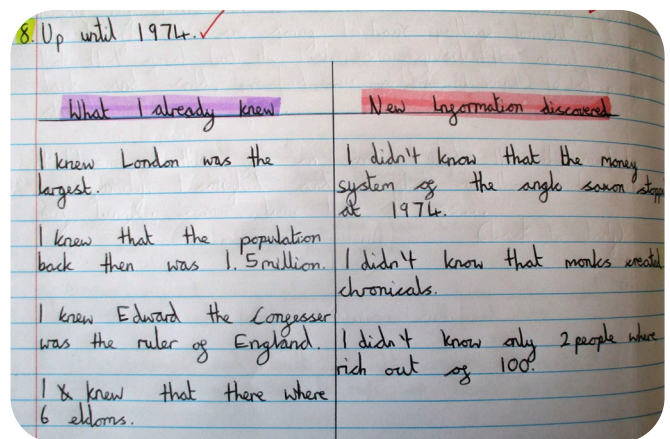 8. Up until 1974.
What I already knew
I knew London was the
largest.
I knew that the population
back then was 1.5million.
I knew Edward the Congesser
was the ruler of England.
I knew that there where
6 eldoms.
New Information discovered
I didn't know that the money
system of the anglo saxon stopp
at 1974.
I didn't know that monks created
chronicals.
I didn't know only 2 people where
rich out of 100.